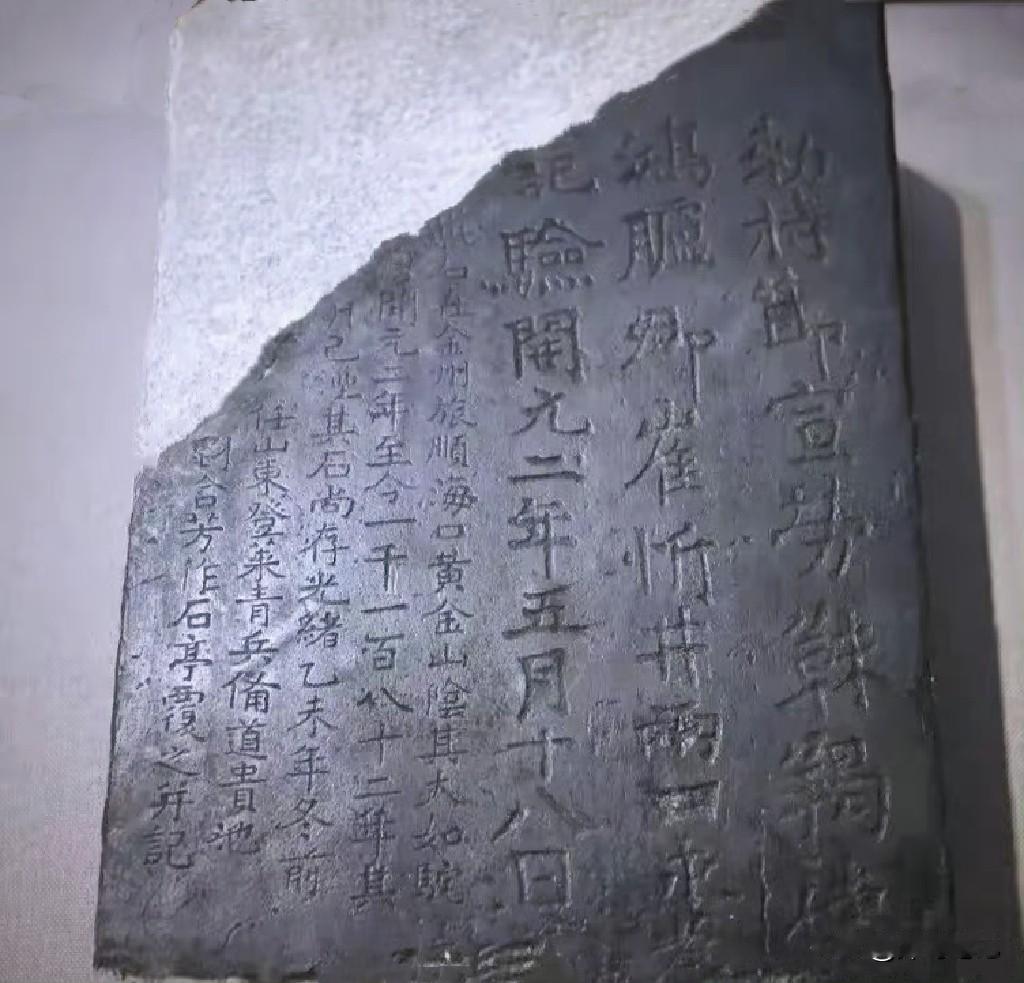 勅持節宣勞靺羯使
鴻臚卿崔忻井兩口永爲
記驗開元二年五月十八日
石在金州旅順海口黃金山陰其大如駝
開元二年至今一千一百八十二年其
井已湮其石尚存光緒乙未年冬前
任山東登萊青兵備道貴池
劉含芳作石亭覆之并記